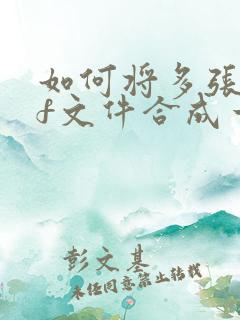 如何将多张
f文件合成
彭文基
未经同意禁止转载